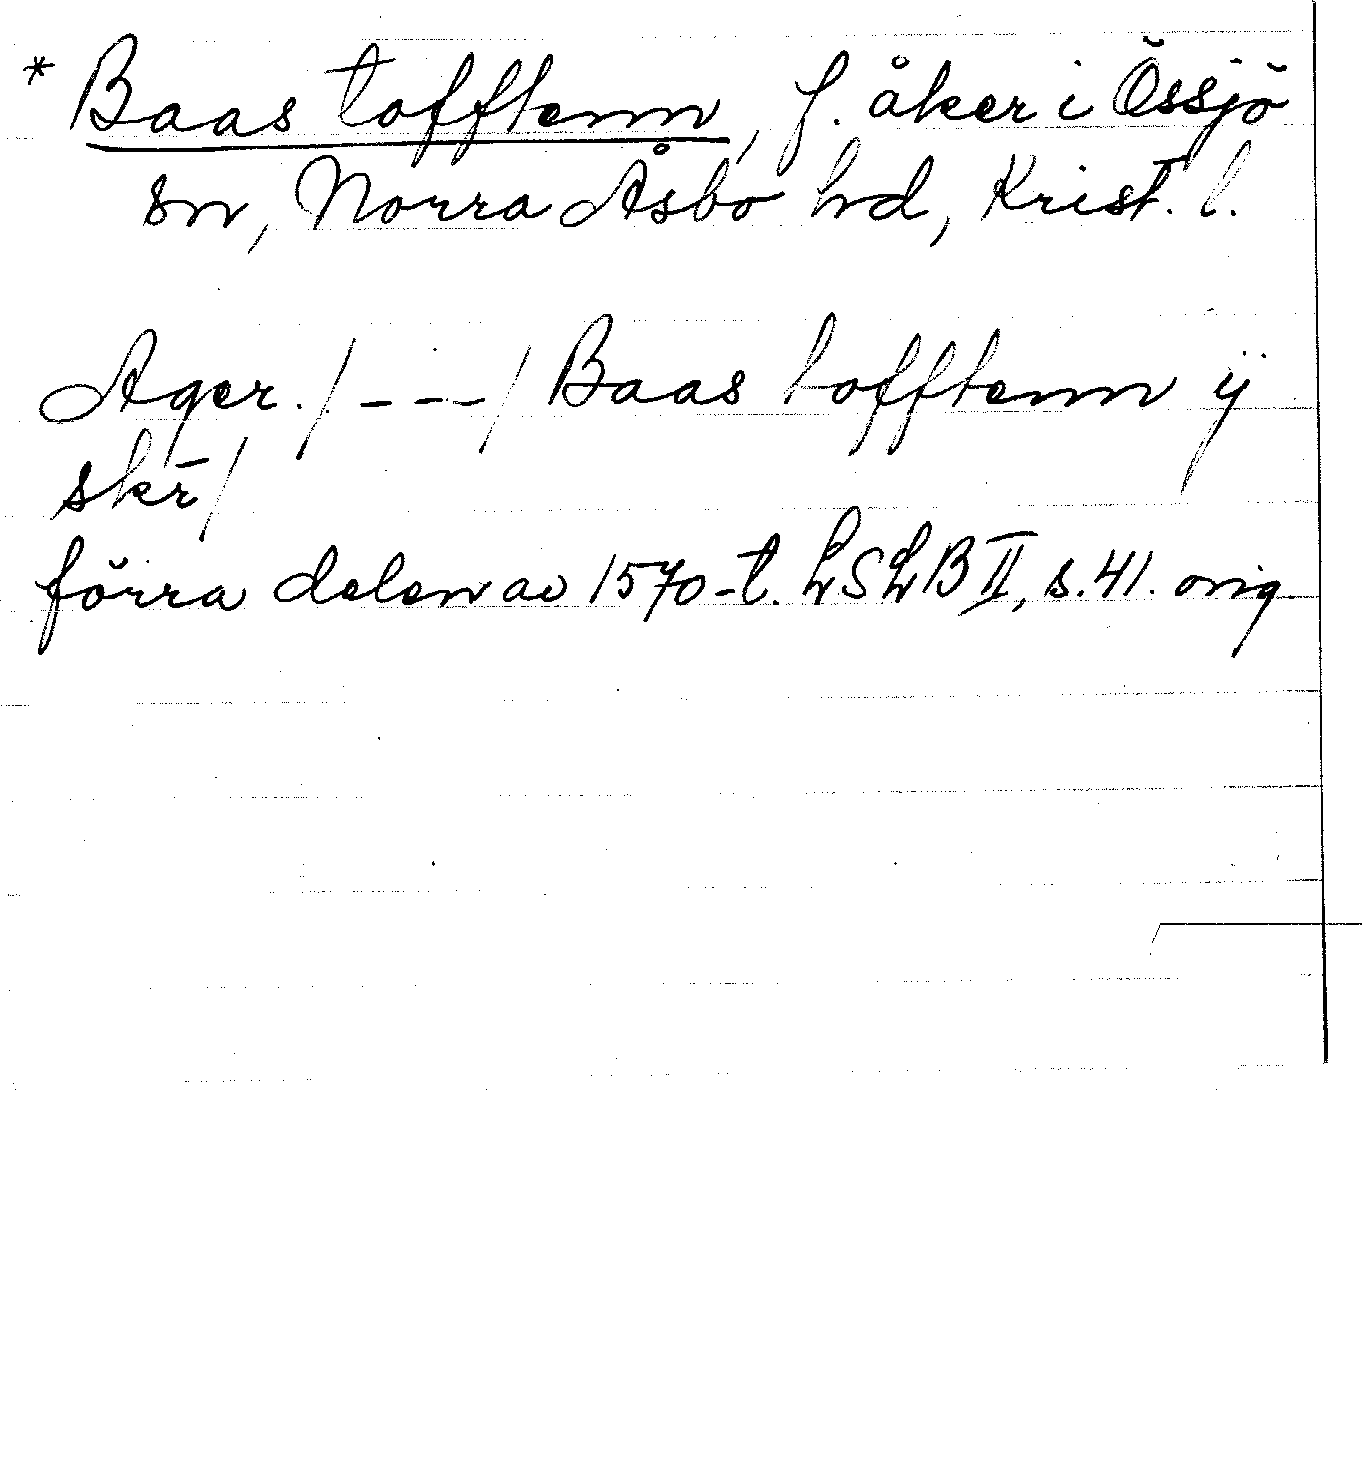 * Baas tofftenn, f. åker i Össjö
sn, Norra Åsbo hd, Krist. l.
Ager. / --- / Baas tofftenn ÿ
skr̄ /
förra delen av 1570-t. LSLB II, s. 41. orig